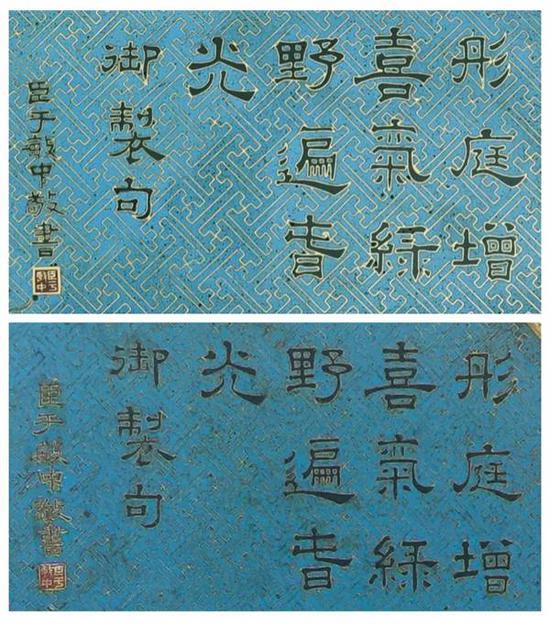 彤庭增
喜氣綠
野遍旾
光
御製句
臣于敏中敬書
彤庭增
喜氣綠
野遍旾
光
御製句
臣于敏中敬書